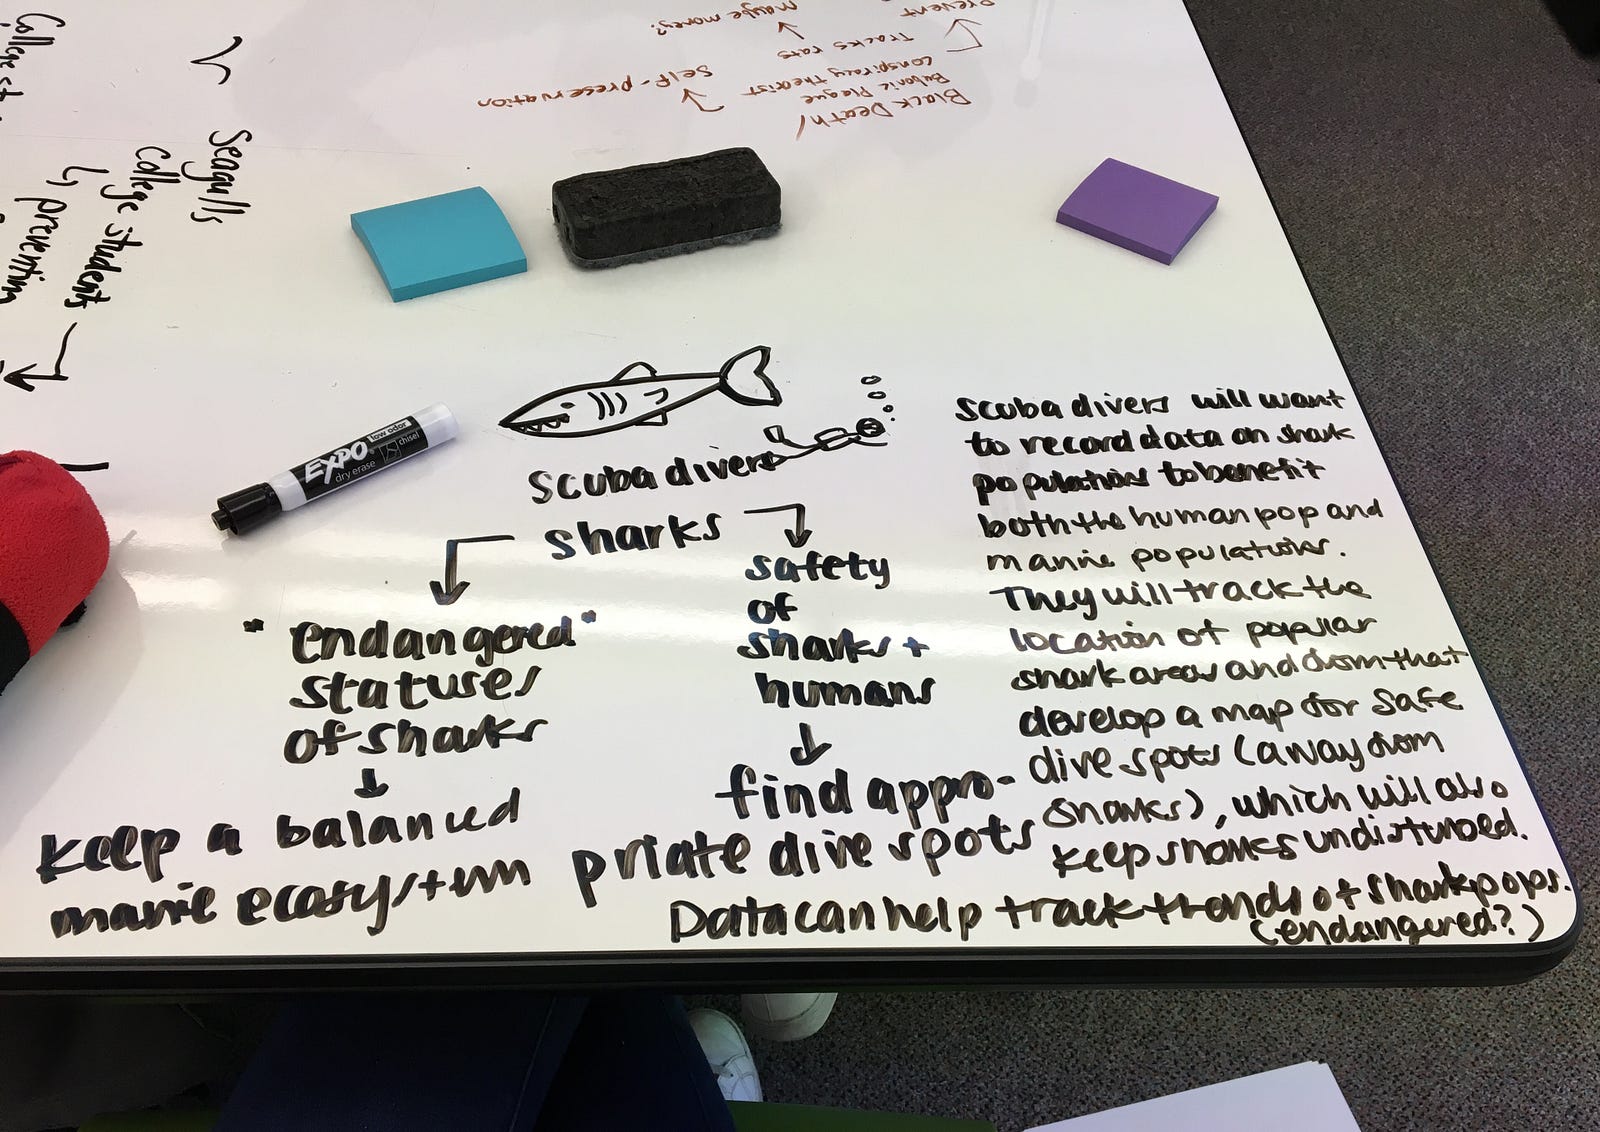 maybe money?
prevent
tracks rats
self-preservation
conspiracy theorist
Bubonic Plague
Black Death/
Seagulls
college students
↳ preventing
College
EXPO
low odor
chisel
dry erase
scuba divers
sharks
"endangered"
statuses
of sharks
keep a balanced
marine ecosystem
safety
of
sharks +
humans
find appro-
priate dive spots
scuba divers will want
to record data on shark
populations to benefit
both the human pop and
marine populations.
They will track the
location of popular
shark areas and from that
develop a map for safe
dive spots (away from
sharks), which will also
keep sharks undisturbed.
Data can help track trends of shark pops.
(endangered?)